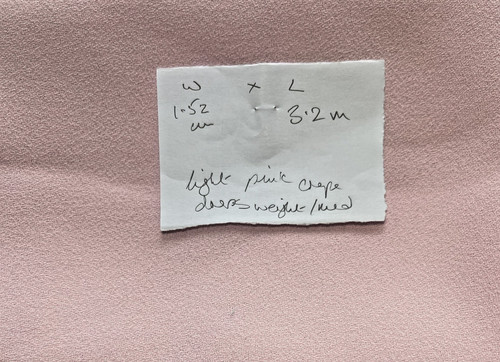 W x L
1.52 3.2 m
m
light pink crepe
dress weight/med